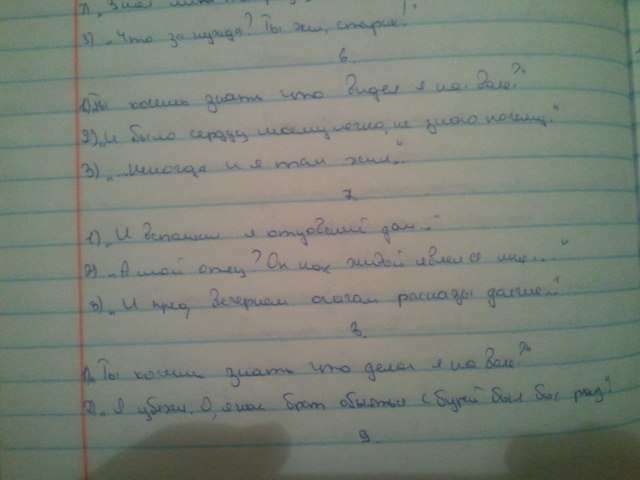 3) „Что за нужда? Ты жил, старик!"
6.
1) „Ты хочешь знать что видел я на воле?"
2) „И было сердцу моему легко, не знаю почему."
3) „...Никогда и я там жил..."
7
1) „И вспомнил я отцовский дом..."
2) „А мой отец? Он как живой являлся мне..."
3) „И пред вечерним очагом рассказы долгие..."
8.
1) „Ты хочешь знать что делал я на воле?"
2) „Я убежал. О, я как брат обняться с бурей был бы рад!"
9.